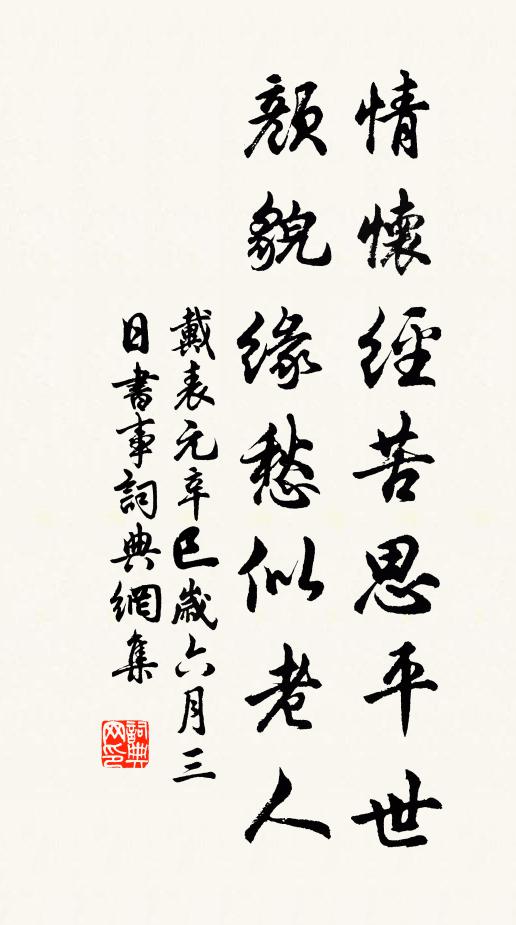 情懷經苦思平世
顏貌緣愁似老人
戴表元辛巳歲六月三
日書事詞典網集
詞典
网印